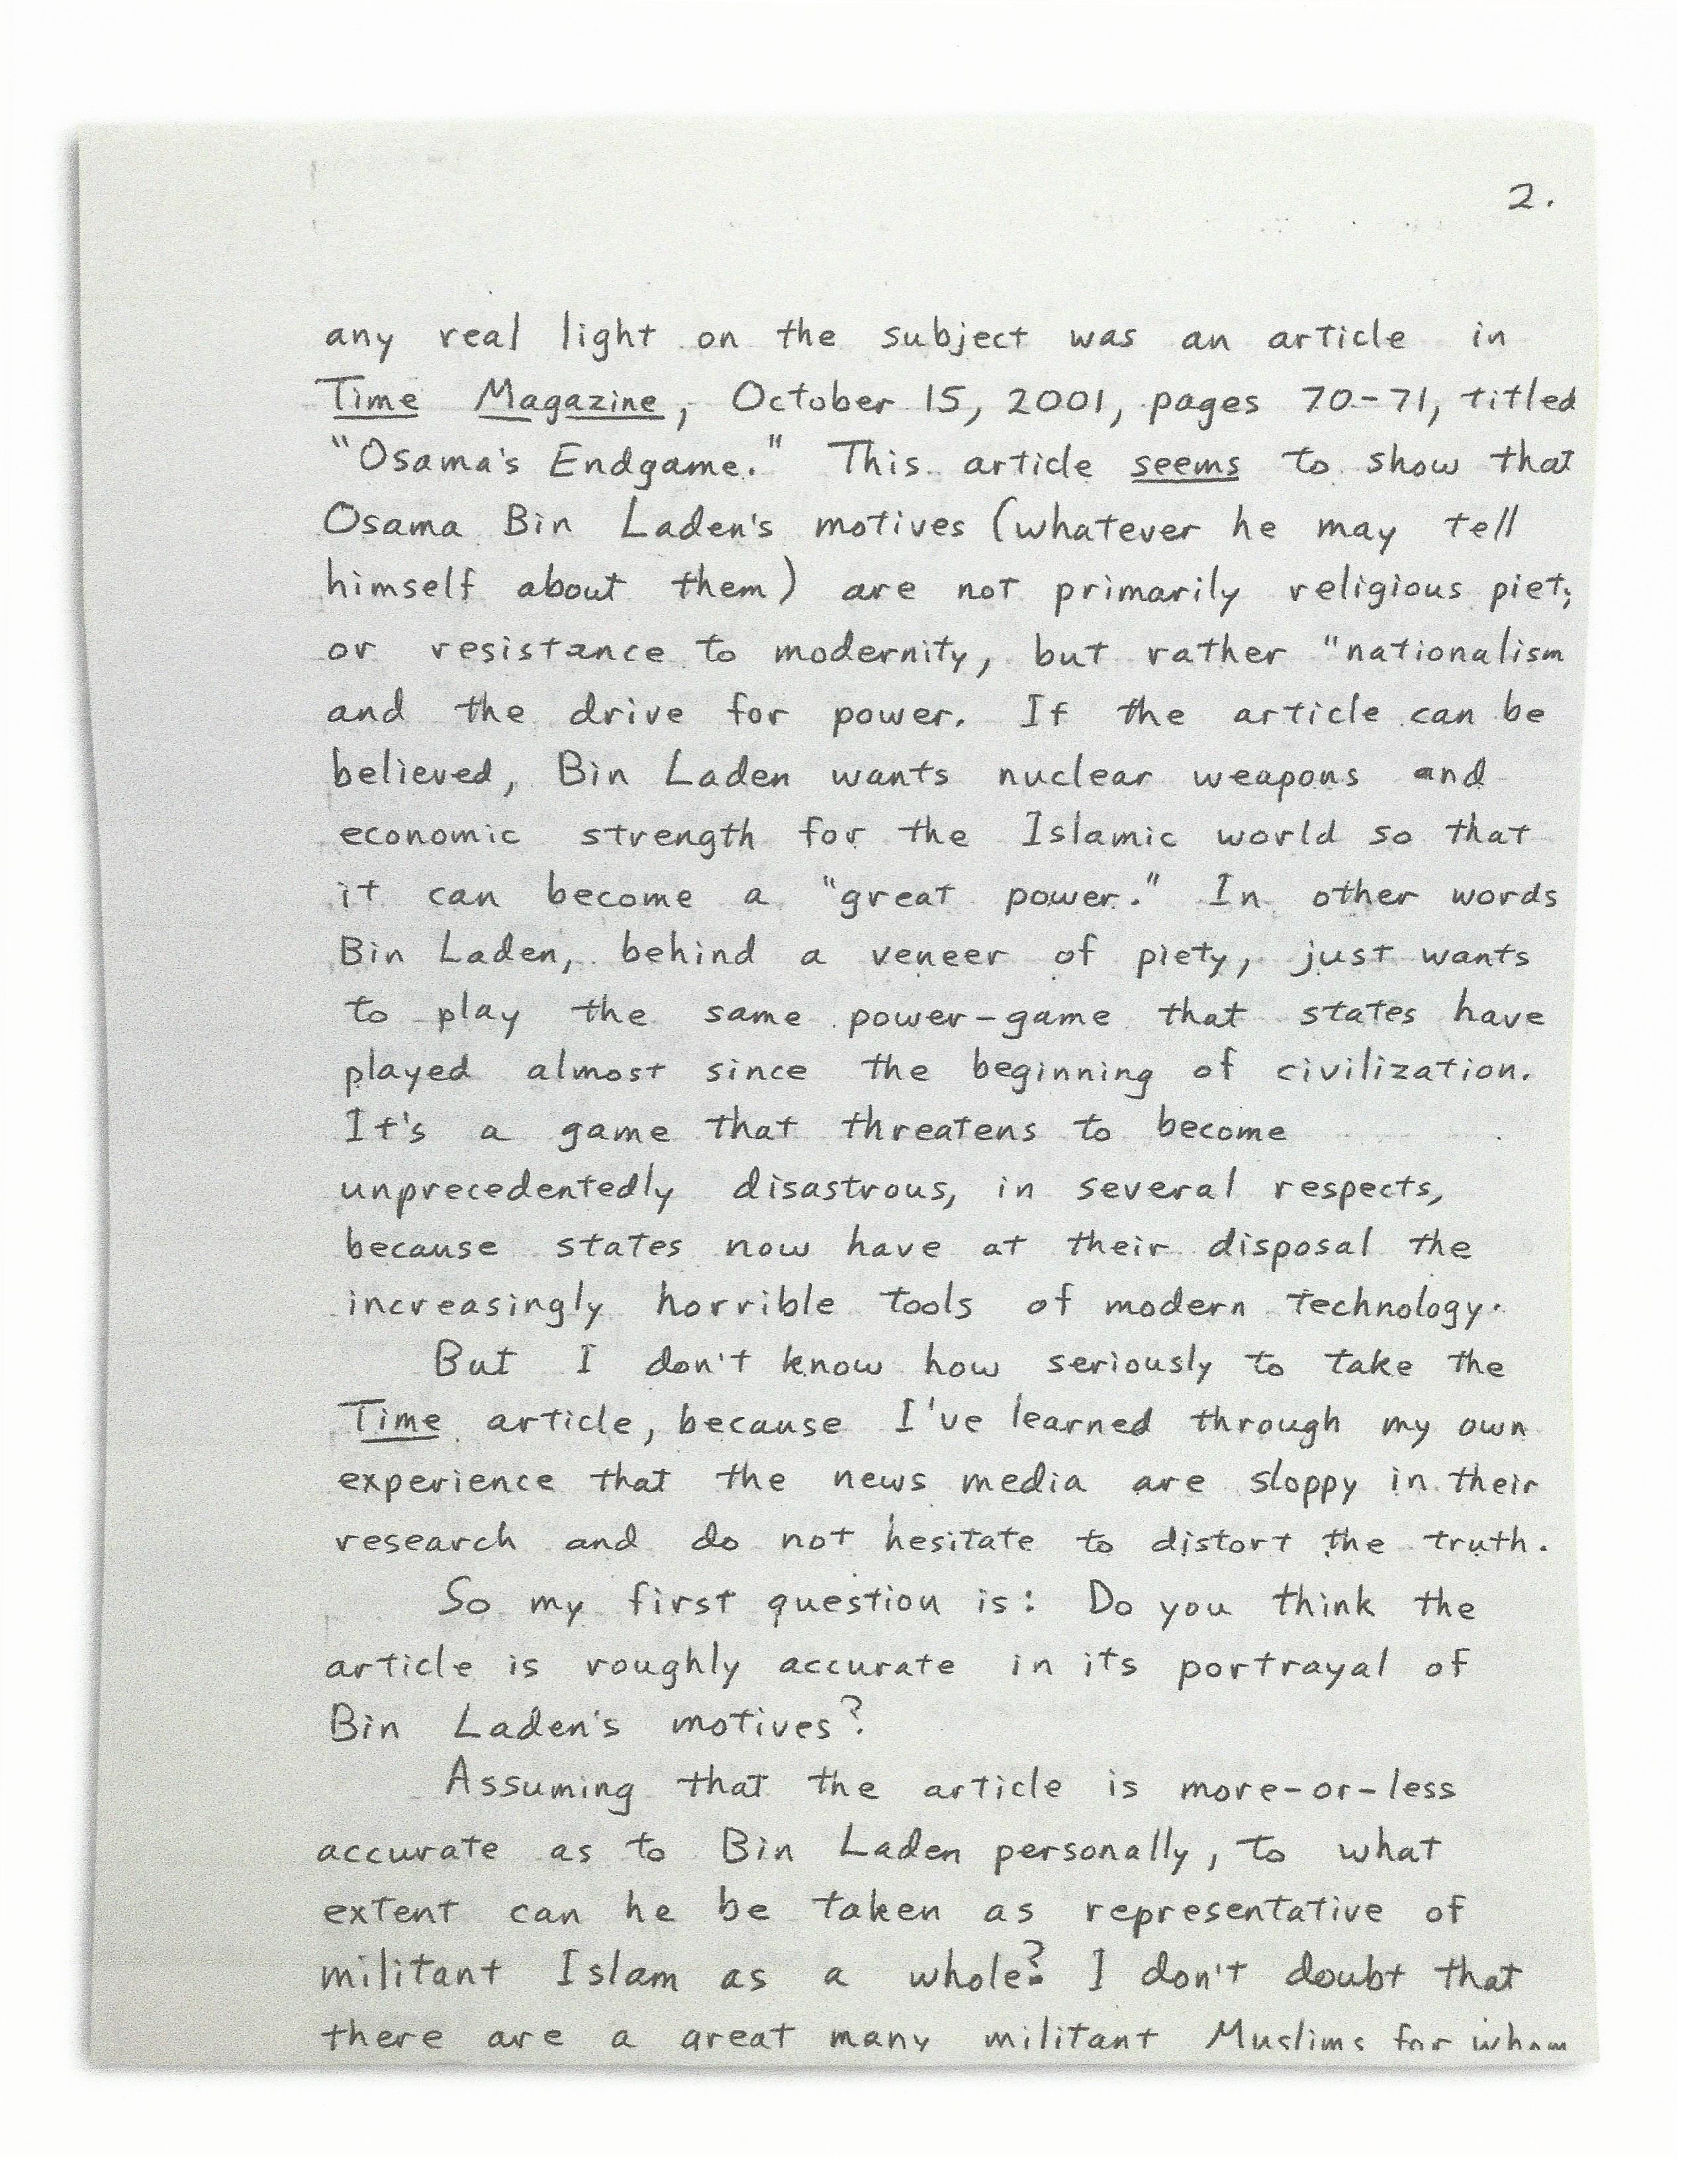 2.
any real light on the subject was an article in
Time Magazine, October 15, 2001, pages 70-71, titled
"Osama's Endgame." This article seems to show that
Osama Bin Laden's motives (whatever he may tell
himself about them) are not primarily religious piety
or resistance to modernity, but rather "nationalism
and the drive for power. If the article can be
believed, Bin Laden wants nuclear weapons and
economic strength for the Islamic world so that
it can become a "great power." In other words
Bin Laden, behind a veneer of piety, just wants
to play the same power-game that states have
played almost since the beginning of civilization.
It's a game that threatens to become
unprecedentedly disastrous, in several respects,
because states now have at their disposal the
increasingly horrible tools of modern technology.
But I don't know how seriously to take the
Time article, because I've learned through my own
experience that the news media are sloppy in their
research and do not hesitate to distort the truth.
So my first question is: Do you think the
article is roughly accurate in its portrayal of
Bin Laden's motives?
Assuming that the article is more-or-less
accurate as to Bin Laden personally, to what
extent can he be taken as representative of
militant Islam as a whole? I don't doubt that
there are a great many militant Muslims for whom